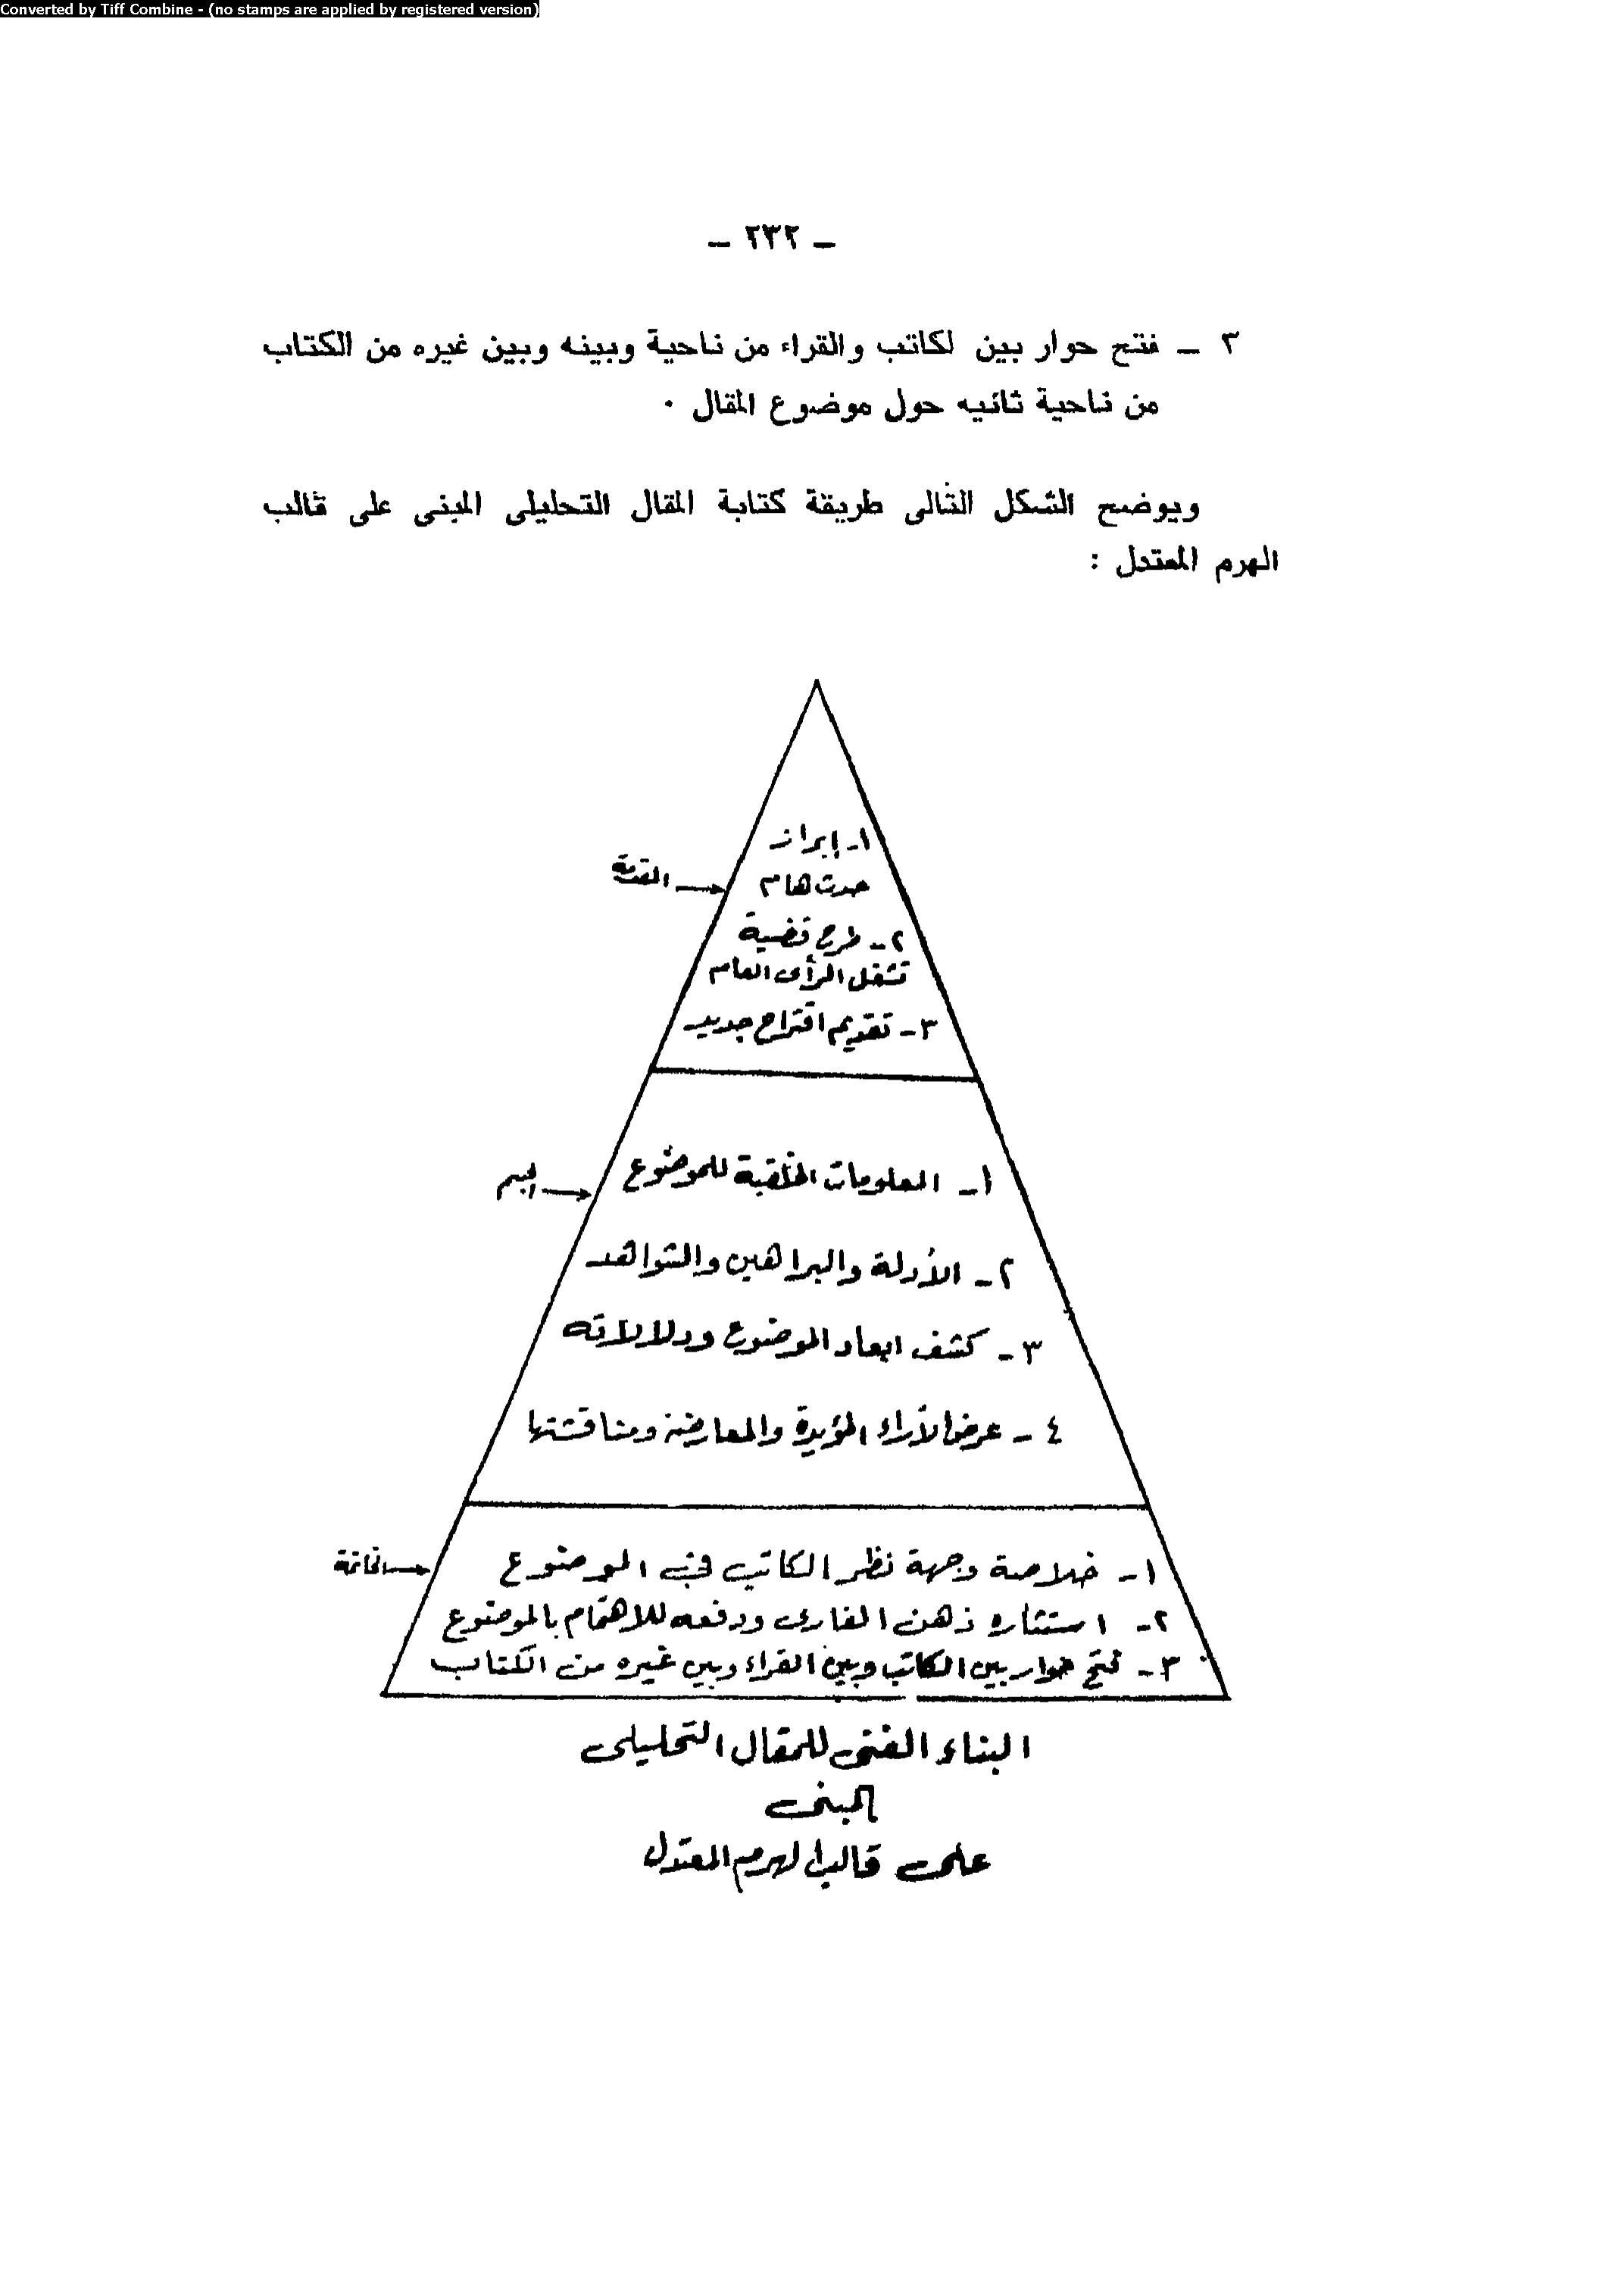 Converted by Tiff Combine - (no stamps are applied by registered version)
– ٢٣٢ –
٣ – فتح حوار بين لكاتب والقراء من ناحية وبينه وبين غيره من الكتاب
من ناحية ثانيه حول موضوع المقال ٠
ويوضح الشكل التالى طريقة كتابة المقال التحليلى المبنى على قالب
الهرم المعتدل :
١- إبراز
حدث هام
المقدمة
٢- طرح قضية
تشغل الرأى العام
٣- تقديم اقتراح جديد
١- المعلومات الخلفية للموضوع
الجسم
٢- الأدلة والبراهين والشواهد
٣- كشف ابعاد الموضوع ودلالاته
٤- عرض الآراء المؤيدة والمعارضة ومناقشتها
١- خلاصة وجهة نظر الكاتب فى الموضوع
الخاتمة
٢- استثاره ذهن القارى ودفعه للاهتمام بالموضوع
٣- فتح حوار بين الكاتب وبين القراء وبين غيره من الكتاب
البناء الفنى للمقال التحليلى
المبنى
على قالب الهرم المعتدل